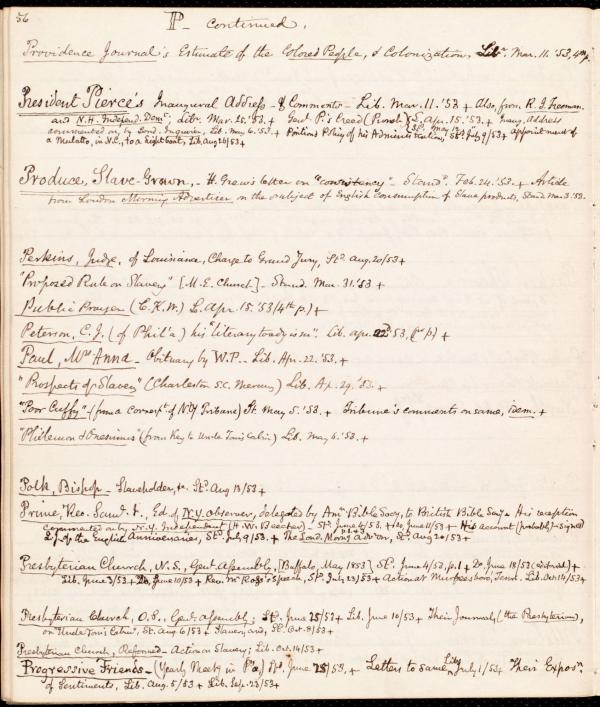 56
P- continued.
Providence Journal's Estimate of the Colored People, & Colonization, Lib. Mar. 11. '53, 4th p.
President Pierce's Inaugural Address - & Comments - Lib. Mar. 11. '53 + Also, from R. I. Freeman.
and N.H. Independ. Dem; Libr. Mar. 25. '53. + Genl P.'s creed Apr. 15. '53. + Inaug. Address
commented on, by Lond. Inquirer, Lib. May 6. '53 + Position & Policy of his Administration, Std July 9/53 + Appointment of
a Mulatto, in N.C., to a Lib. Aug 26/53 +
Produce, Slave-Grown, - H. Grew's letter on "consistency" - Stand. Feb. 24. '53. + Article
from London Morning Advertiser on the subject of English Consumption of Slave products, Stand. Mar. 3. '53.
Perkins, Judge, of Louisiana, Charge to Grand Jury, Std. Aug. 20/53 +
"Proposed Rule on Slavery" [M.E. Church] - Stand. Mar. 31. '53 +
Public Prayer (E.K.W.) L. Apr. 15. '53 (4th p.) +
Peterson, C.J. (of Phil'a) his "literary toadyism". Lib. Apr. 22d '53.
Paul, Mrs Anna - Obituary by W.P. - Lib. Apr. 22. '53. +
"Prospects of Slavery" (Charleston S.C. Mercury) Lib. Ap. 29. '53. +
"Poor Cuffy" - (from a corresp't of N.Y. Tribune) St. May 5. '53. + Tribune's comments on same, idem. +
"Philemon & Onesimus" (from Key to Uncle Tom's Cabin) Lib. May 6. '53. +
Polk, Bishop - Slaveholder, &c. Std. Aug 13/53 +
Prime, Rev. Saml. I., Ed. of N.Y. Observer, delegated by Amn Bible Socy, to British Bible Socy + His reception
commented on by N.Y. Independent (H.W. Beecher) - Std. June 4/53. + June 11/53 + His account (probably) - signed
of the English Anniversaries, Std. July 9/53. + The Lond. Morng Adver on, Std Aug 20/53 +
Presbyterian Church, N.S., Genl. Assembly, [Buffalo, May 1853] Std. June 4/53, p. 1 + Do June 18/53 (editorial) +
Lib. June 3/53 + June 10/53 + Rev. Mr Speech, Std. July 23/53 + Action at Murfreesboro, Tenn. Lib. Oct. 14/53 +
Presbyterian Church, O.S., Genl. Assembly; Std. June 25/53 + Lib. June 10/53 + Their Journals (the Presbyterian),
on Uncle Tom's Cabin, St. Aug 6/53 + Slavery, and, St. Oct. 8/53 +
Presbyterian Church, Reformed - Action on Slavery; Lib. Oct. 14/53 +
Progressive Friends - (Yearly Meetg in Pa.) St. June 25/53. + Letters to same, Lib July 1/53 + Their Exposn
of Sentiments, Lib. Aug. 5/53 + Lib. Sep. 23/53 +